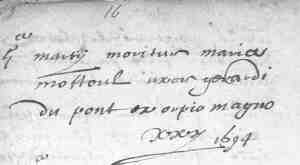 16
4ᵃ martij moritur maria
mottoul uxor gerardi
du pont ex orpio magno
XXV 1694